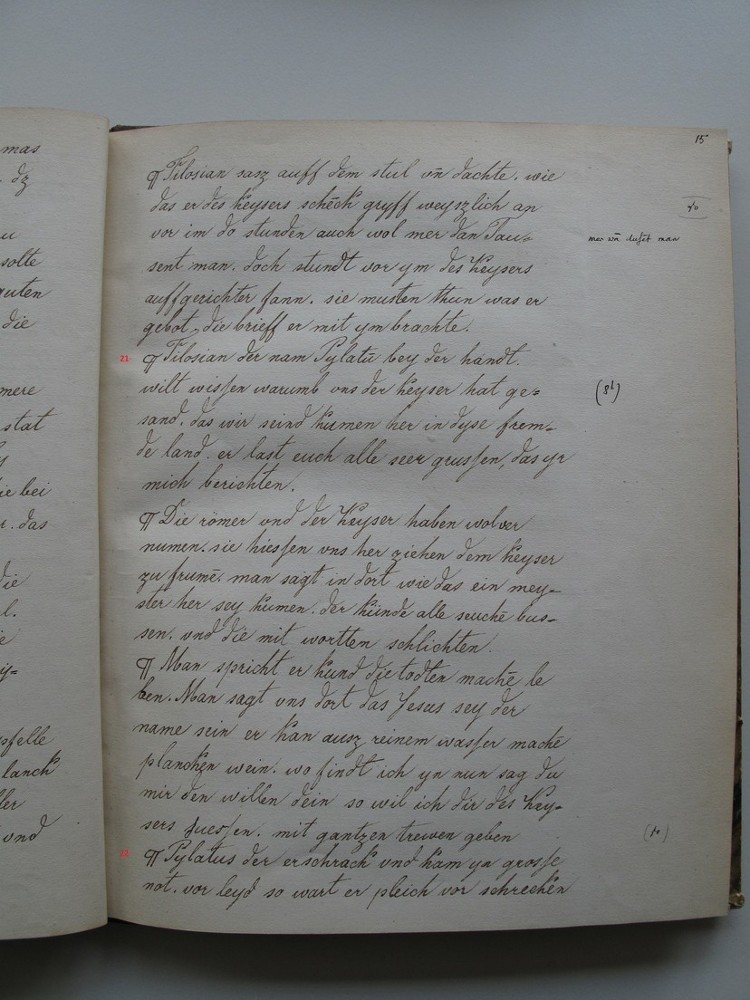 mas
dz
solte
guten
die
mere
stat
ie bei
r. das
die
l.
sfelle
lanck
ller
ond
15
¶ Tilosian sasz auff dem stul vñ dachte. wie
das er des keysers schēck gryff weyszlich an
vor im do stunden auch wol mer dan Tau=
sent man. doch stundt vor ym des Keysers
auffgerichter fann. sie musten thun was er
gebot, die brieff er mit ym brachte.
21 ¶ Tilosian der nam Pylatū bey der handt.
wilt wissen warumb vns der Keyser hat ge=
sand. das wir seind kumen her in dyse frem=
de land. er last euch alle seer grussen, das yr
mich berichten.
¶ Die römer vnd der Keyser haben wol ver
numen. sie hiessen vns her ziehen dem keyser
zu frumē. man sagt in dort wie das ein mey=
ster her sey kumen. der künde alle seuchē bus=
sen. vnd die mit wortten schlichten.
¶ Man spricht er kund die todten machē le
ben. Man sagt vns dort das Jesus sey der
name sein er kan ausz reinem wasser machē
planckēn wein. wo findt ich yn nun sag du
mir den willen dein so wil ich dir des Key=
sers gantzen trewen geben
¶ Pylatus der erschrack vnd kam yn grosse
not. vor leyd so wart er pleich vor schrecken
40
mer vñ
man
(8b)
(10)